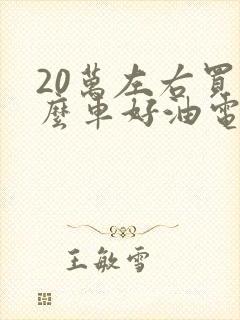 20萬左右買
麼車好油電
王敏雪